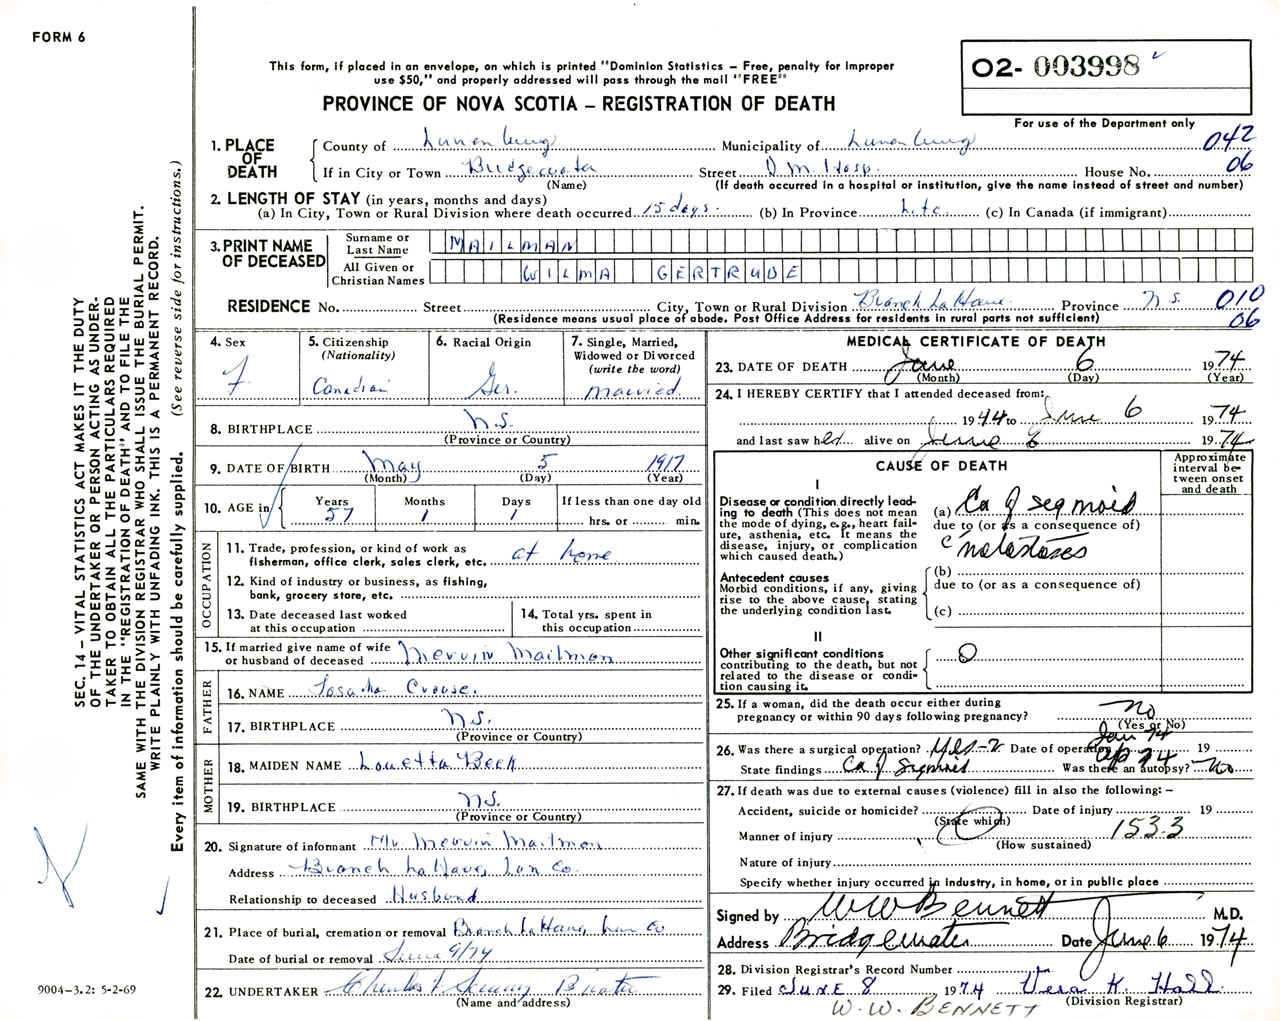 FORM 6
This form, if placed in an envelope, on which is printed "Dominion Statistics – Free, penalty for improper
use $50," and properly addressed will pass through the mail "FREE"
PROVINCE OF NOVA SCOTIA – REGISTRATION OF DEATH
02- 003998
For use of the Department only
1. PLACE OF DEATH
County of Lunenburg Municipality of Lunenburg 042
If in City or Town Bridgewater Street D.M. Hosp. House No. 06
(Name) (If death occurred in a hospital or institution, give the name instead of street and number)
2. LENGTH OF STAY (in years, months and days)
(a) In City, Town or Rural Division where death occurred 15 days. (b) In Province Life (c) In Canada (if immigrant)
3. PRINT NAME OF DECEASED
Surname or Last Name MAILMAN
All Given or Christian Names WILMA GERTRUDE
RESIDENCE No. Street City, Town or Rural Division Branch LaHave Province N.S. 010
(Residence means usual place of abode. Post Office Address for residents in rural parts not sufficient) 06
4. Sex F
5. Citizenship (Nationality) Canadian
6. Racial Origin Ger.
7. Single, Married, Widowed or Divorced (write the word) Married.
8. BIRTHPLACE N.S.
(Province or Country)
9. DATE OF BIRTH May 5 1917
(Month) (Day) (Year)
10. AGE in Years 57 Months 1 Days 1 If less than one day old hrs. or min.
OCCUPATION
11. Trade, profession, or kind of work as
fisherman, office clerk, sales clerk, etc. at home
12. Kind of industry or business, as fishing,
bank, grocery store, etc.
13. Date deceased last worked
at this occupation
14. Total yrs. spent in
this occupation
15. If married give name of wife
or husband of deceased Mervin Mailman
FATHER
16. NAME Crouse.
17. BIRTHPLACE N.S.
(Province or Country)
MOTHER
18. MAIDEN NAME Louetta Beck
19. BIRTHPLACE N.S.
(Province or Country)
20. Signature of informant Mr. Mervin Mailman
Address Branch LaHave, Lun Co.
Relationship to deceased Husband
21. Place of burial, cremation or removal Branch LaHave, Lun Co
Date of burial or removal June 9/74
22. UNDERTAKER Charles
(Name and address)
MEDICAL CERTIFICATE OF DEATH
23. DATE OF DEATH June 6 1974
(Month) (Day) (Year)
24. I HEREBY CERTIFY that I attended deceased from:
1944 to June 6 1974
and last saw her alive on June 6 1974
CAUSE OF DEATH
Approximate interval between onset and death
I
Disease or condition directly lead-
ing to death (This does not mean
the mode of dying, e.g., heart fail-
ure, asthenia, etc. It means the
disease, injury, or complication
which caused death.)
(a) Ca of segmoid
due to (or as a consequence of)
c metastases
Antecedent causes
Morbid conditions, if any, giving
rise to the above cause, stating
the underlying condition last.
(b)
due to (or as a consequence of)
(c)
II
Other significant conditions
contributing to the death, but not
related to the disease or condi-
tion causing it.
O
25. If a woman, did the death occur either during
pregnancy or within 90 days following pregnancy? No
(Yes or No)
26. Was there a surgical operation? Yes-2 Date of operation Jan 74 19
State findings Ca of Sigmoid Ap 74 Was there an autopsy? No
27. If death was due to external causes (violence) fill in also the following: –
Accident, suicide or homicide? Date of injury 19
(State which)
Manner of injury 153.3
(How sustained)
Nature of injury
Specify whether injury occurred in industry, in home, or in public place
Signed by WW Bennett M.D.
Address Bridgewater Date June 6 1974
28. Division Registrar's Record Number
29. Filed JUNE 8 1974 Vera K. Hall
(Division Registrar)
W. W. BENNETT
SEC. 14 – VITAL STATISTICS ACT MAKES IT THE DUTY
OF THE UNDERTAKER OR PERSON ACTING AS UNDER-
TAKER TO OBTAIN ALL THE PARTICULARS REQUIRED
IN THE "REGISTRATION OF DEATH" AND TO FILE THE
SAME WITH THE DIVISION REGISTRAR WHO SHALL ISSUE THE BURIAL PERMIT.
WRITE PLAINLY WITH UNFADING INK. THIS IS A PERMANENT RECORD.
Every item of information should be carefully supplied. (See reverse side for instructions.)
9004-3.2: 5-2-69